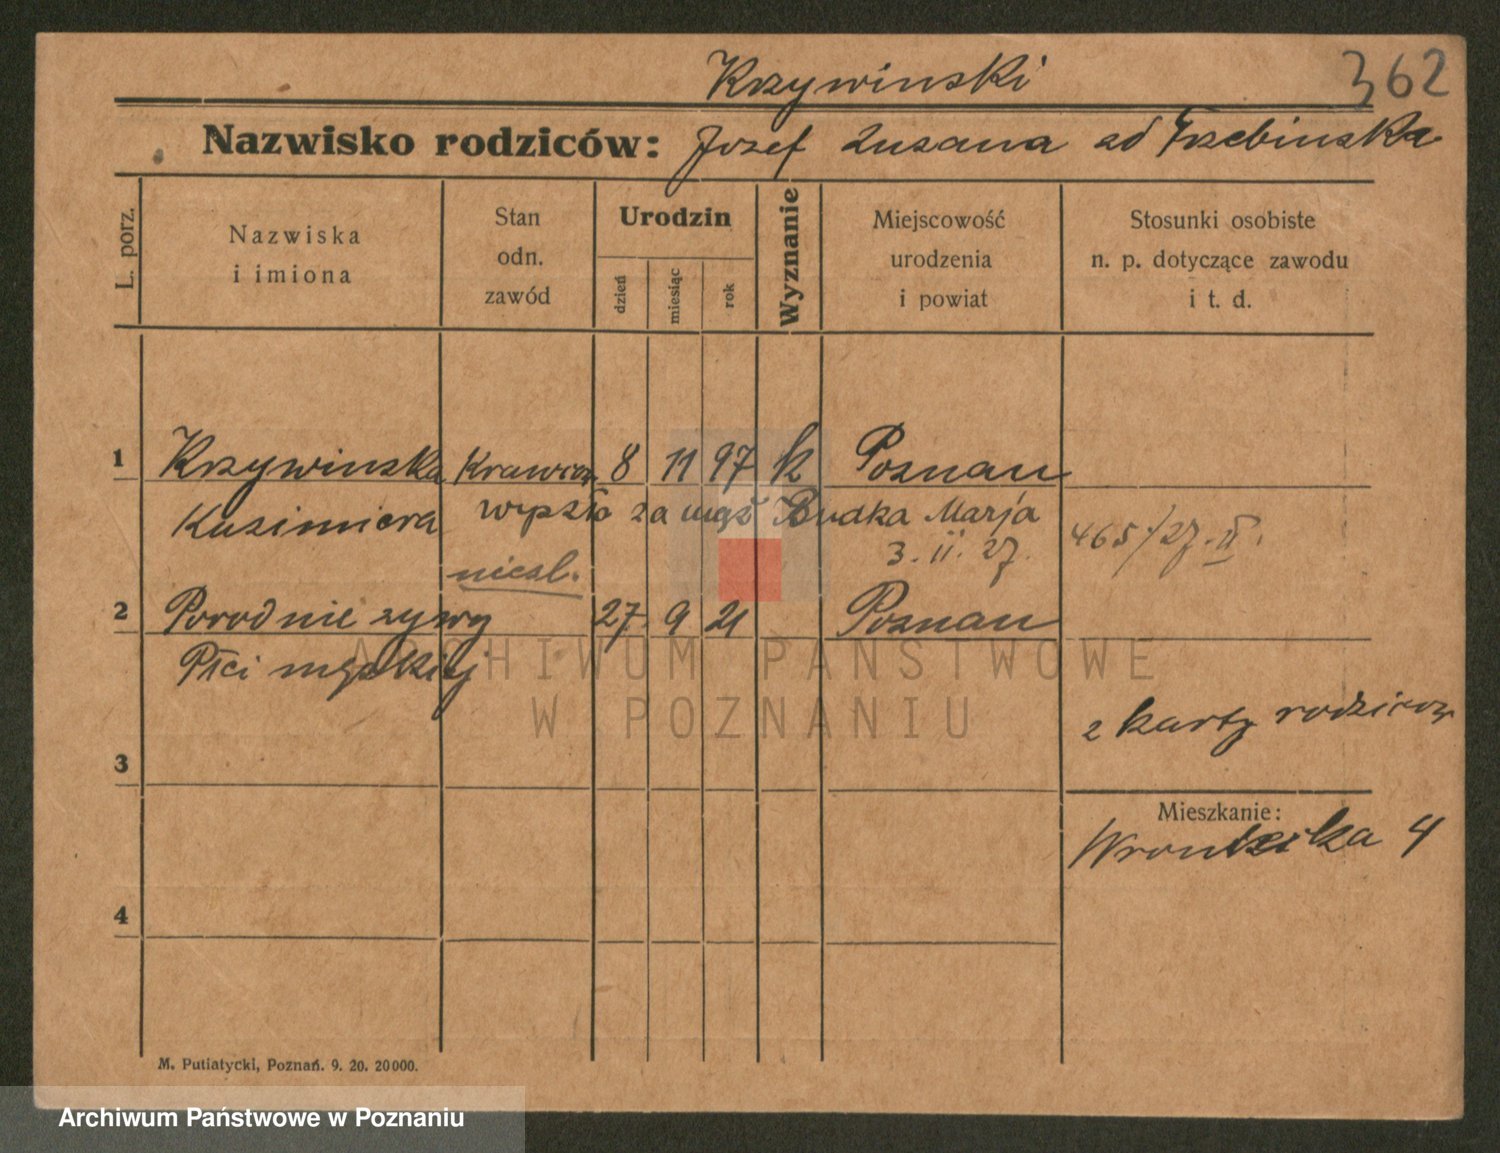 Krzywinski
362
Nazwisko rodziców: Jozef Zusana od Trzebinska
L. porz.
Nazwiska
i imiona
Stan
odn.
zawód
Urodzin
dzień
miesiąc
rok
Wyznanie
Miejscowość
urodzenia
i powiat
Stosunki osobiste
n. p. dotyczące zawodu
i t. d.
1 Krzywinska Krawcow 8 11 97 k Poznan
Kazimiera wyszło za mąż Budka Marja
3. II. 27. 465/27. II.
niesl.
2 Porod nie zywy 27 9 21 Poznan
Płci męskiej
ARCHIWUM PAŃSTWOWE
W POZNANIU
z karty rodzicow
3
Mieszkanie:
Wroniecka 4
4
M. Putiatycki, Poznań. 9. 20. 20000.
Archiwum Państwowe w Poznaniu